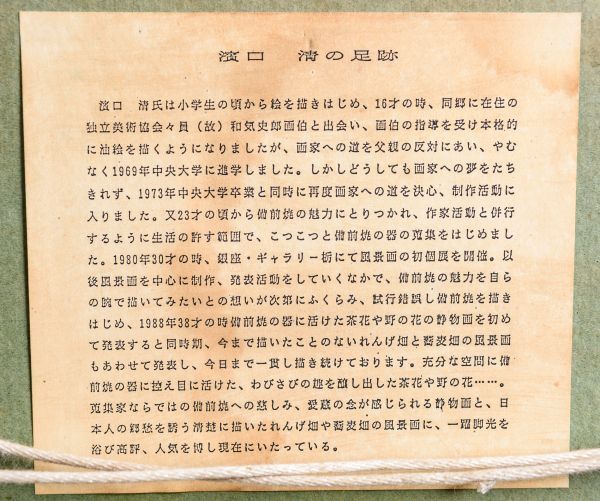 濱口　清の足跡
濱口　清氏は小学生の頃から絵を描きはじめ、16才の時、同郷に在住の
独立美術協会々員（故）和気史郎画伯と出会い、画伯の指導を受け本格的
に油絵を描くようになりましたが、画家への道を父親の反対にあい、やむ
なく1969年中央大学に進学しました。しかしどうしても画家への夢をたち
きれず、1973年中央大学卒業と同時に再度画家への道を決心、制作活動に
入りました。又23才の頃から備前焼の魅力にとりつかれ、作家活動と併行
するように生活の許す範囲で、こつこつと備前焼の器の蒐集をはじめまし
た。1980年30才の時、銀座・ギャラリー栃にて風景画の初個展を開催。以
後風景画を中心に制作、発表活動をしていくなかで、備前焼の魅力を自ら
の腕で描いてみたいとの想いが次第にふくらみ、試行錯誤し備前焼を描き
はじめ、1988年38才の時備前焼の器に活けた茶花や野の花の静物画を初め
て発表すると同時期、今まで描いたことのないれんげ畑と蕎麦畑の風景画
もあわせて発表し、今日まで一貫し描き続けております。充分な空間に備
前焼の器に控え目に活けた、わびさびの趣を醸し出した茶花や野の花……。
蒐集家ならではの備前焼への慈しみ、愛蔵の念が感じられる静物画と、日
本人の郷愁を誘う清楚に描いたれんげ畑や蕎麦畑の風景画に、一躍脚光を
浴び高評、人気を博し現在にいたっている。